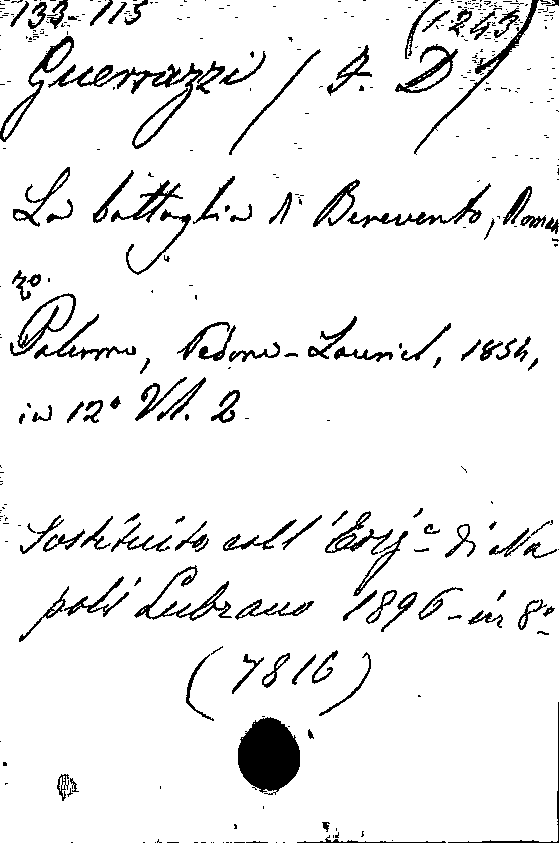 133-115 (1243)
Guerrazzi / F. D /
La battaglia di Benevento, Roman
zo.
Palermo, Pedone-Lauriel, 1854,
in 12° Vol. 2
Sostituito coll' Ediz.e di Na
poli Lubrano 1896 - in 8°
(7816)